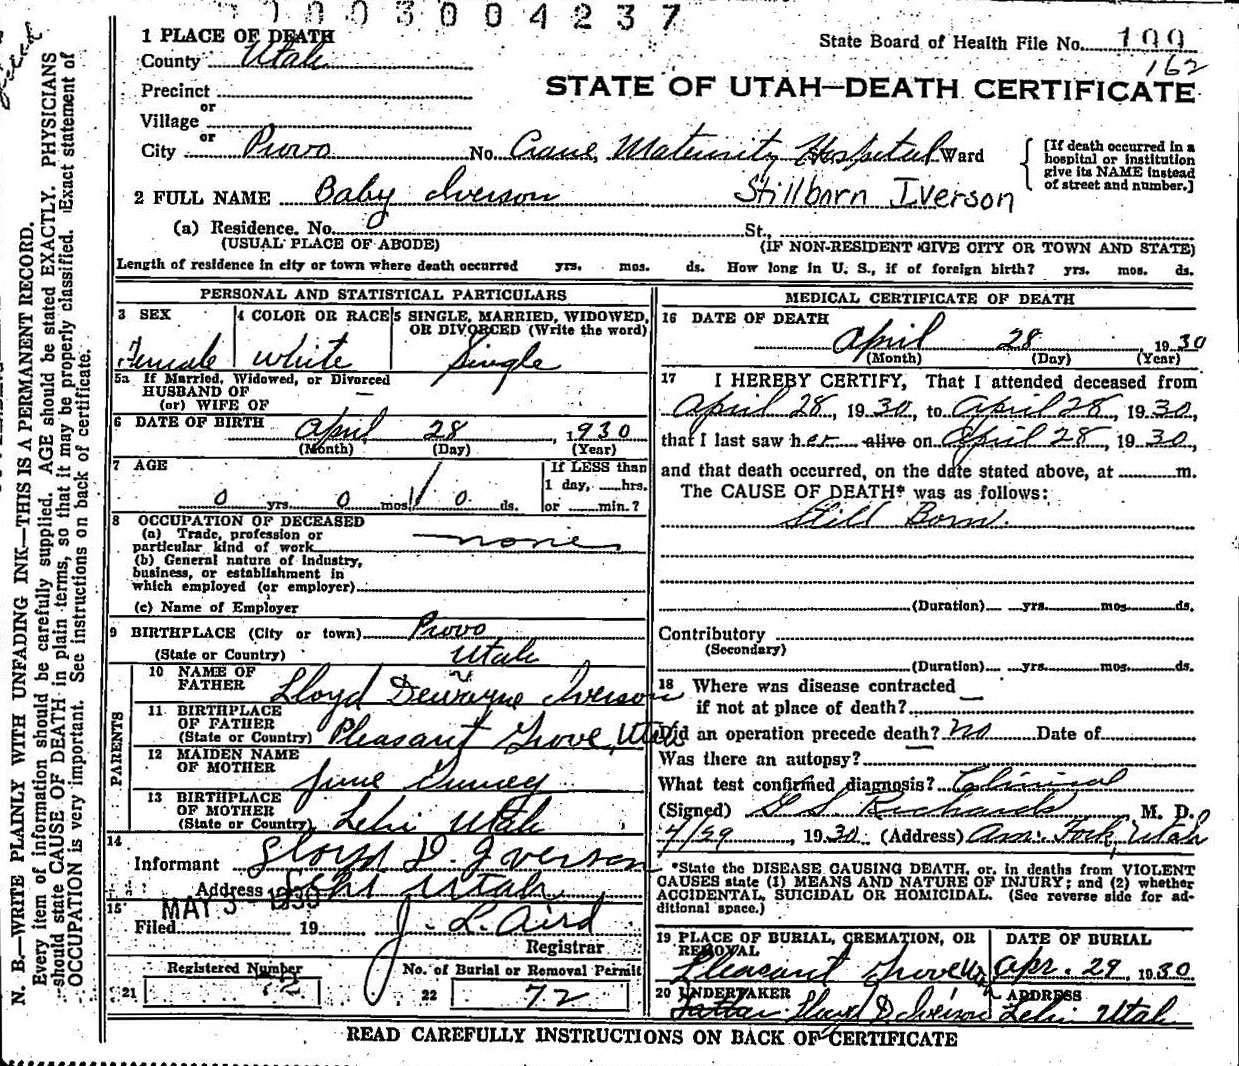 1003004237
1 PLACE OF DEATH
State Board of Health File No. 199
162
County Utah
STATE OF UTAH—DEATH CERTIFICATE
Precinct
or
Village
or
City Provo No. Crane Maternity Hospital Ward
[If death occurred in a hospital or institution give its NAME instead of street and number.]
2 FULL NAME Baby Iverson Stillborn Iverson
(a) Residence. No. St.,
(USUAL PLACE OF ABODE) (IF NON-RESIDENT GIVE CITY OR TOWN AND STATE)
Length of residence in city or town where death occurred yrs. mos. ds. How long in U. S., if of foreign birth? yrs. mos. ds.
PERSONAL AND STATISTICAL PARTICULARS
3 SEX
Female
4 COLOR OR RACE
white
5 SINGLE, MARRIED, WIDOWED, OR DIVORCED (Write the word)
Single
5a If Married, Widowed, or Divorced
HUSBAND OF
(or) WIFE OF —
6 DATE OF BIRTH April 28, 1930
(Month) (Day) (Year)
7 AGE
0 yrs. 0 mos. 0 ds.
If LESS than
1 day, hrs.
or min.?
8 OCCUPATION OF DECEASED
(a) Trade, profession or
particular kind of work none
(b) General nature of industry,
business, or establishment in
which employed (or employer)
(c) Name of Employer
9 BIRTHPLACE (City or town) Provo
(State or Country) Utah
PARENTS
10 NAME OF FATHER Lloyd Dewayne Iverson
11 BIRTHPLACE OF FATHER
(State or Country) Pleasant Grove, Utah
12 MAIDEN NAME OF MOTHER June
13 BIRTHPLACE OF MOTHER
(State or Country) Lehi Utah
14
Informant Lloyd D. Iverson
Address Lehi Utah
15
Filed MAY 3 1930 19 J. L. Aird
Registrar
Registered Number
21
No. of Burial or Removal Permit
22 72
MEDICAL CERTIFICATE OF DEATH
16 DATE OF DEATH
April 28 1930
(Month) (Day) (Year)
17 I HEREBY CERTIFY, That I attended deceased from
April 28, 1930, to April 28, 1930,
that I last saw her alive on April 28, 1930,
and that death occurred, on the date stated above, at m.
The CAUSE OF DEATH* was as follows:
Still Born.
(Duration) yrs. mos. ds.
Contributory
(Secondary)
(Duration) yrs. mos. ds.
18 Where was disease contracted
if not at place of death? —
Did an operation precede death? no Date of
Was there an autopsy?
What test confirmed diagnosis? Clinical
(Signed) G S Richards M. D.
4/29, 1930 (Address) Am. Fork, Utah
*State the DISEASE CAUSING DEATH, or, in deaths from VIOLENT
CAUSES state (1) MEANS AND NATURE OF INJURY; and (2) whether
ACCIDENTAL, SUICIDAL OR HOMICIDAL. (See reverse side for ad-
ditional space.)
19 PLACE OF BURIAL, CREMATION, OR REMOVAL
Pleasant Grove Utah
DATE OF BURIAL
Apr. 29 1930
20 UNDERTAKER
Father Lloyd D. Iverson
ADDRESS
Lehi Utah
READ CAREFULLY INSTRUCTIONS ON BACK OF CERTIFICATE
N. B.—WRITE PLAINLY WITH UNFADING INK—THIS IS A PERMANENT RECORD.
Every item of information should be carefully supplied. AGE should be stated EXACTLY. PHYSICIANS
should state CAUSE OF DEATH in plain terms, so that it may be properly classified. Exact statement of
OCCUPATION is very important. See instructions on back of certificate.